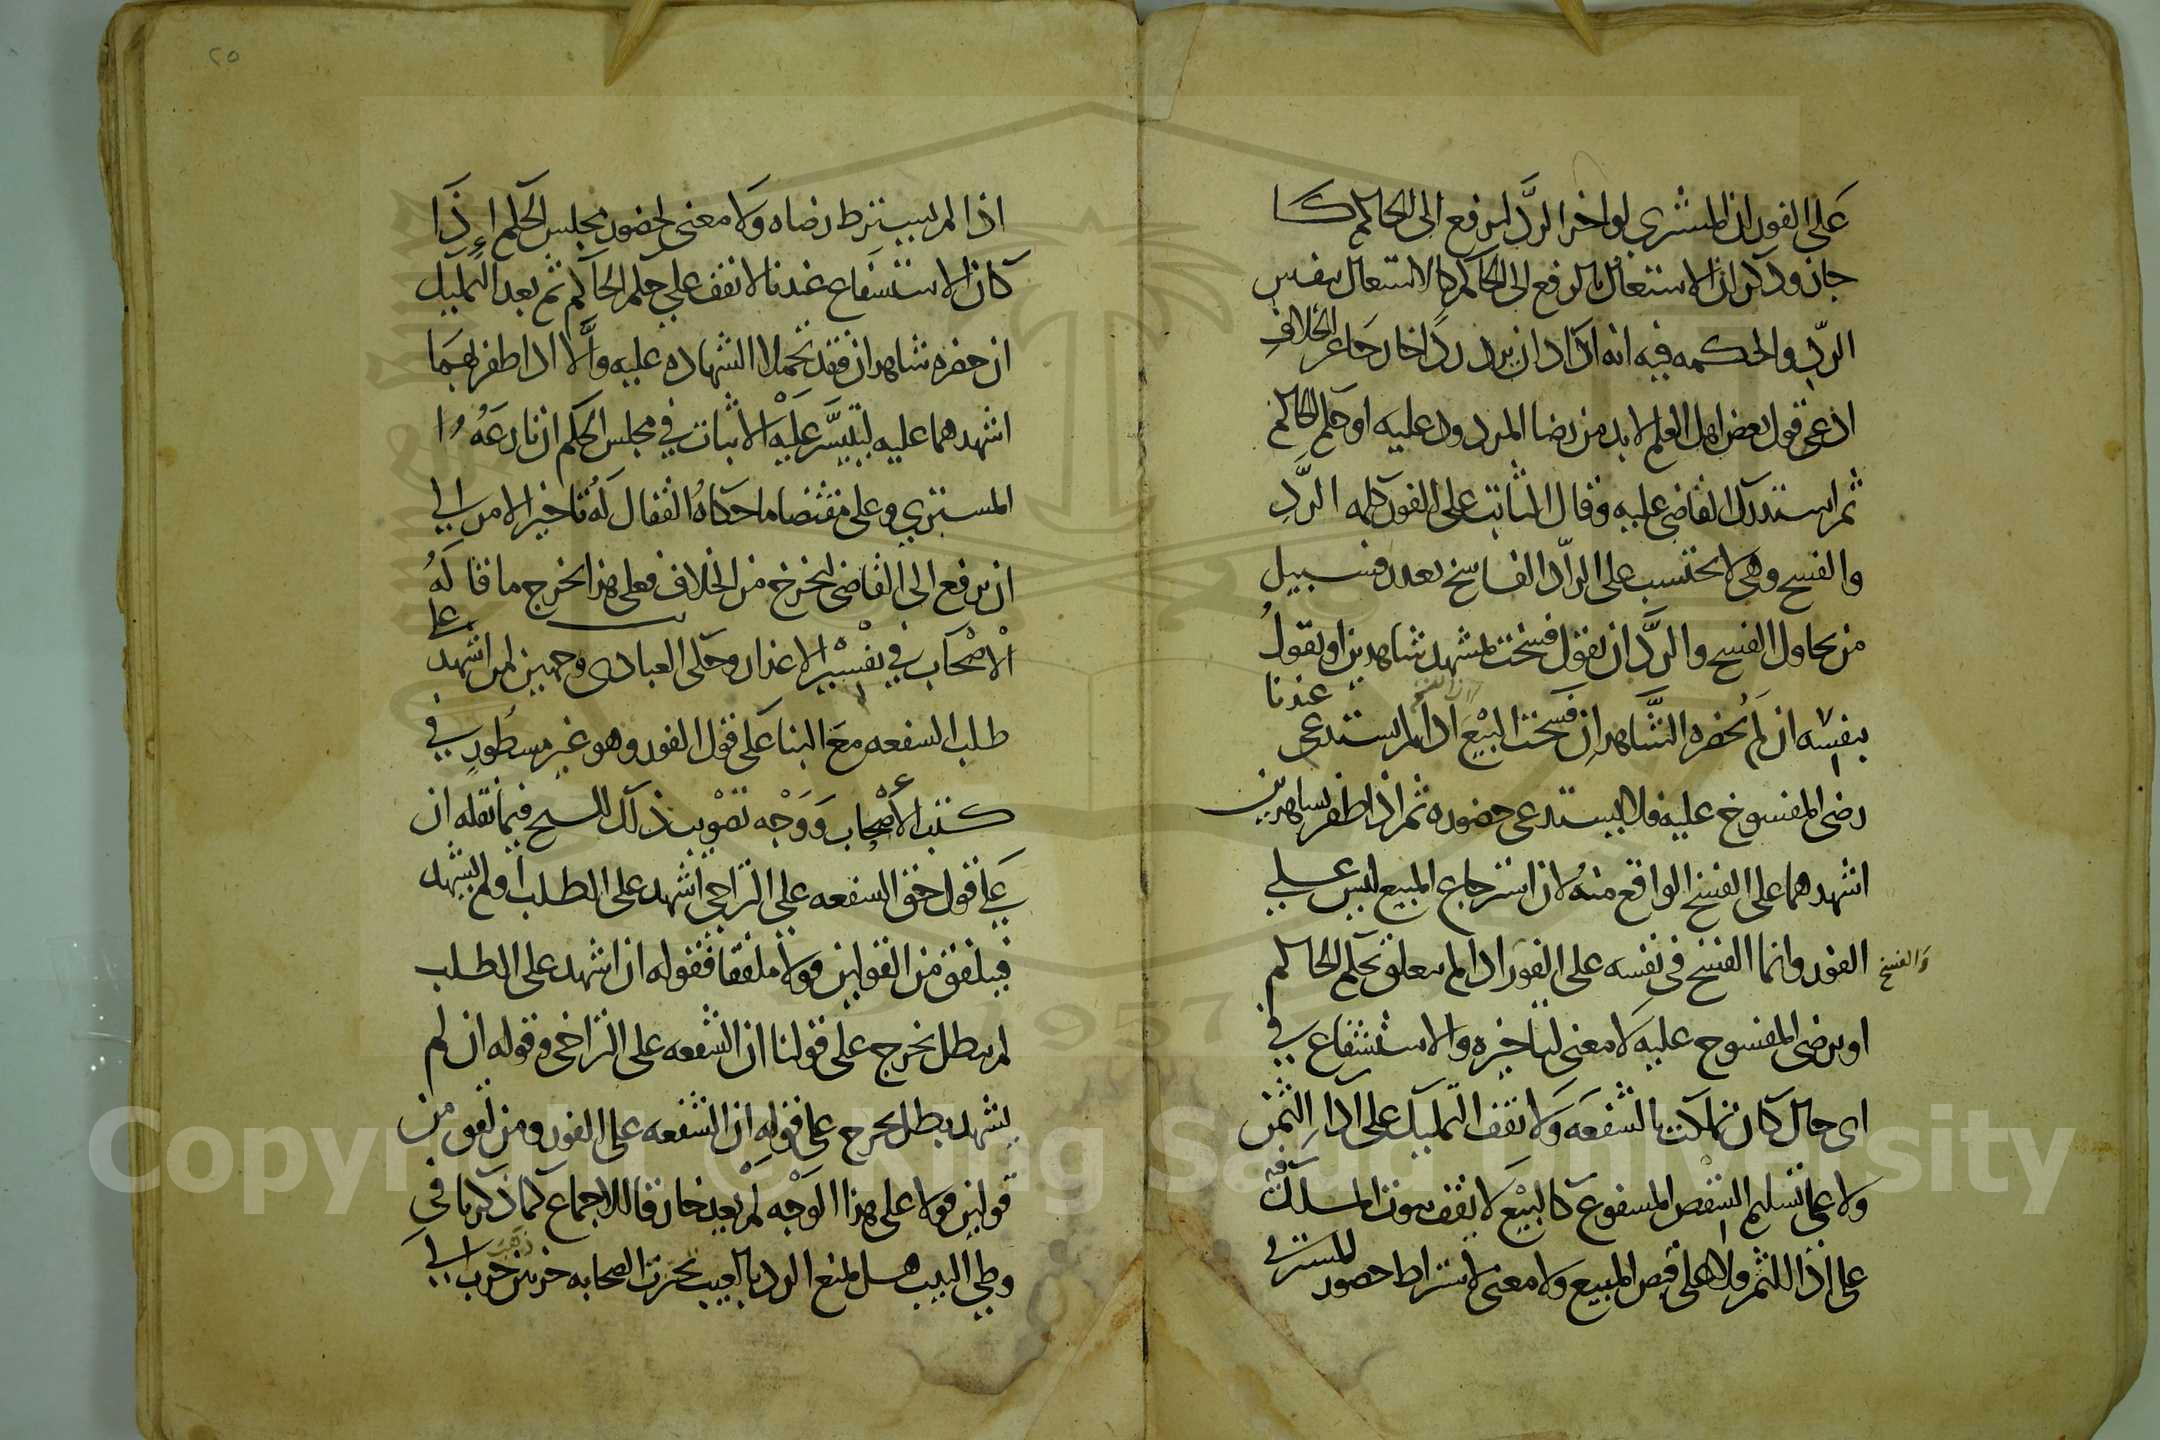 على الفور ان المشتري لو اخر الردَّ ليرفع الى الحاكم كا
جاز وذكر ان الاشتغال بالرفع الى الحاكم كالاشتغال بنفس
الردّ والحكمه فيه انه اراد ان يرد ردا خارجا عن الخلاف
اذ على قول بعض اهل العلم لا بد من رضا المردود عليه او حكم الحاكم
ثم استدرك القاضي عليه وقال الثابت على الفور كلمه الردِّ
والفسخ وهي لا تحتسب على الرادّ الفاسخ بعذر فسبيل
من يحاول الفسخ والردَّ ان يقول فسخت بمشهد شاهدين او يقولُ
بنفسه ان لم يُحضره الشَّاهدان فسخت البيْع اذا لم يستدعي عندنا
رضى المفسوخ عليه فلا يستدعي حضوره ثم اذا ظفر بشاهدين
اشهدهما على الفسخ الواقع منهُ لان استرجاع المبيع ليس على
الفور وانما الفسخ في نفسه على الفور اذا لم يتعلق بحكم الحاكم
والفسخ
او برضى المفسوخ عليه لا معنى لتاخيره والاستشفاع في
اى حال كان تملكت بالشفعَه وَلا تقف التمليك على اداءِ الثمن
ولا على تسليم الشقص المشفوع كالبيْع لا يقف ثبوت الملك فيه
على اذا الثمن ولا على قبض المبيع ولا معنى لاشتراط حضور المشتري
٢٥
اذا لم يشترط رضاه وَلا معنى لحضور مجلس الحكم اِذَا
كان الاستشفاع عندنا لا تقف على حكم الحاكم ثم بعد التمليك
ان حضره شاهدان فقد تحملا الشهاده عليه وَالَّا اذا ظفر بهمَا
اشهدهما عليه ليتيسَّر عليْه الاثبات في مجلس الحكم ان نازعَهُ
المشتري وعلى مقتضا ما حكاهُ القفال لهُ تاخير الامر الى
ان يرفع الى القاضي ليخرج من الخلاف فعلى هذا يخرج ما قالهُ
الاصْحَاب في تفسْير الاعذار وحكى العبادى وجهين لمن اشهد على
طلب الشفعه معَ البنا على قول الفور وهو غير مسطورٍ في
كتب الأصْحاب وَوَجْه تصْويب ذلك الشيخ فيما نقله ان
على قول حق الشفعه على التراخي اشهد على الطلب او لم يشهد
فيلفق من القولين قولا ملفقا فقوله ان اشهد على الطلب
لم يبطل يخرج على قولنا ان الشفعه على التراخي وقوله ان لم
يشهد بطل يخرج على قوله ان الشفعه على الفور ومن لفق من
قولين قولا على هذا الوَجْه لم يعد خارقا للاجماع كما ذكرنا في
وطئ الثيب هل يمنع الرد بالعيب تحزبت الصحابه حزبين حزب ذهب الى